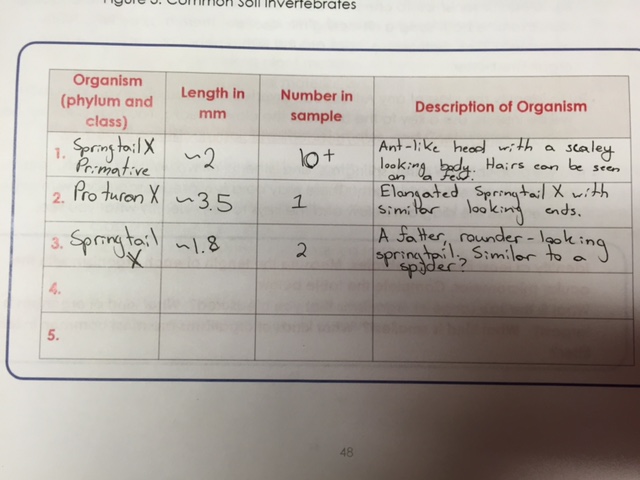 Figure 3. Common Soil Invertebrates
Organism (phylum and class)
Length in mm
Number in sample
Description of Organism
1. Springtail X
Primative
~2
10+
Ant-like head with a scaley
looking body. Hairs can be seen
on a few.
2. Proturan X
~3.5
1
Elongated Springtail X with
similar looking ends.
3. Springtail
X
~1.8
2
A fatter, rounder-looking
springtail. Similar to a
spider?
4.
5.
48